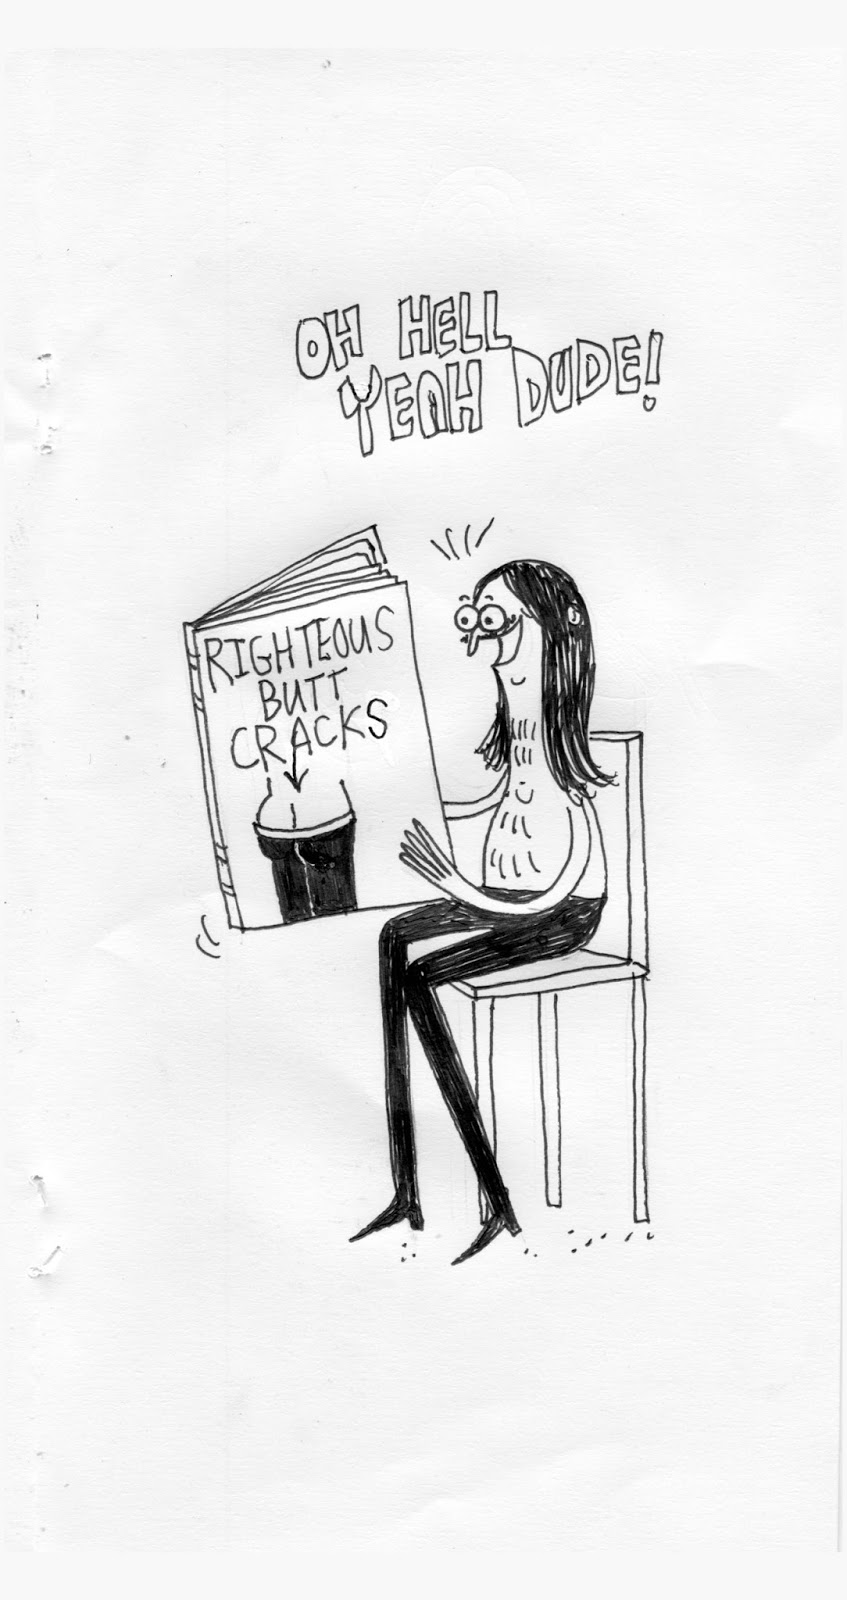 OH HELL
YEAH DUDE!
RIGHTEOUS
BUTT
CRACKS